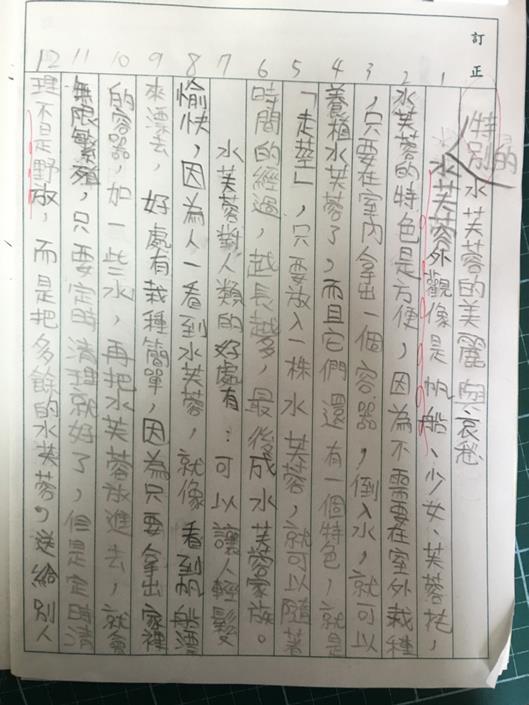 訂正
特別的水芙蓉的美麗與哀愁
水芙蓉外觀像是帆船、少女、芙蓉花，
水芙蓉的特色是方便，因為不需要在室外栽種
，只要在室內拿出一個容器，倒入水，就可以
養植水芙蓉了，而且它們還有一個特色，就是
「走莖」，只要放入一株水芙蓉，就可以隨著
時間的經過，越長越多，最後成水芙蓉家族。
水芙蓉對人類的好處有：可以讓人輕鬆
愉快，因為人一看到水芙蓉，就像看到帆船漂
來漂去，好處有栽種簡單，因為只要拿出家裡
的容器，加一些水，再把水芙蓉放進去，就會
無限繁殖，只要定時清理就好了，但是定時清
理不是野放，而是把多餘的水芙蓉，送給別人
1
2
3
4
5
6
7
8
9
10
11
12